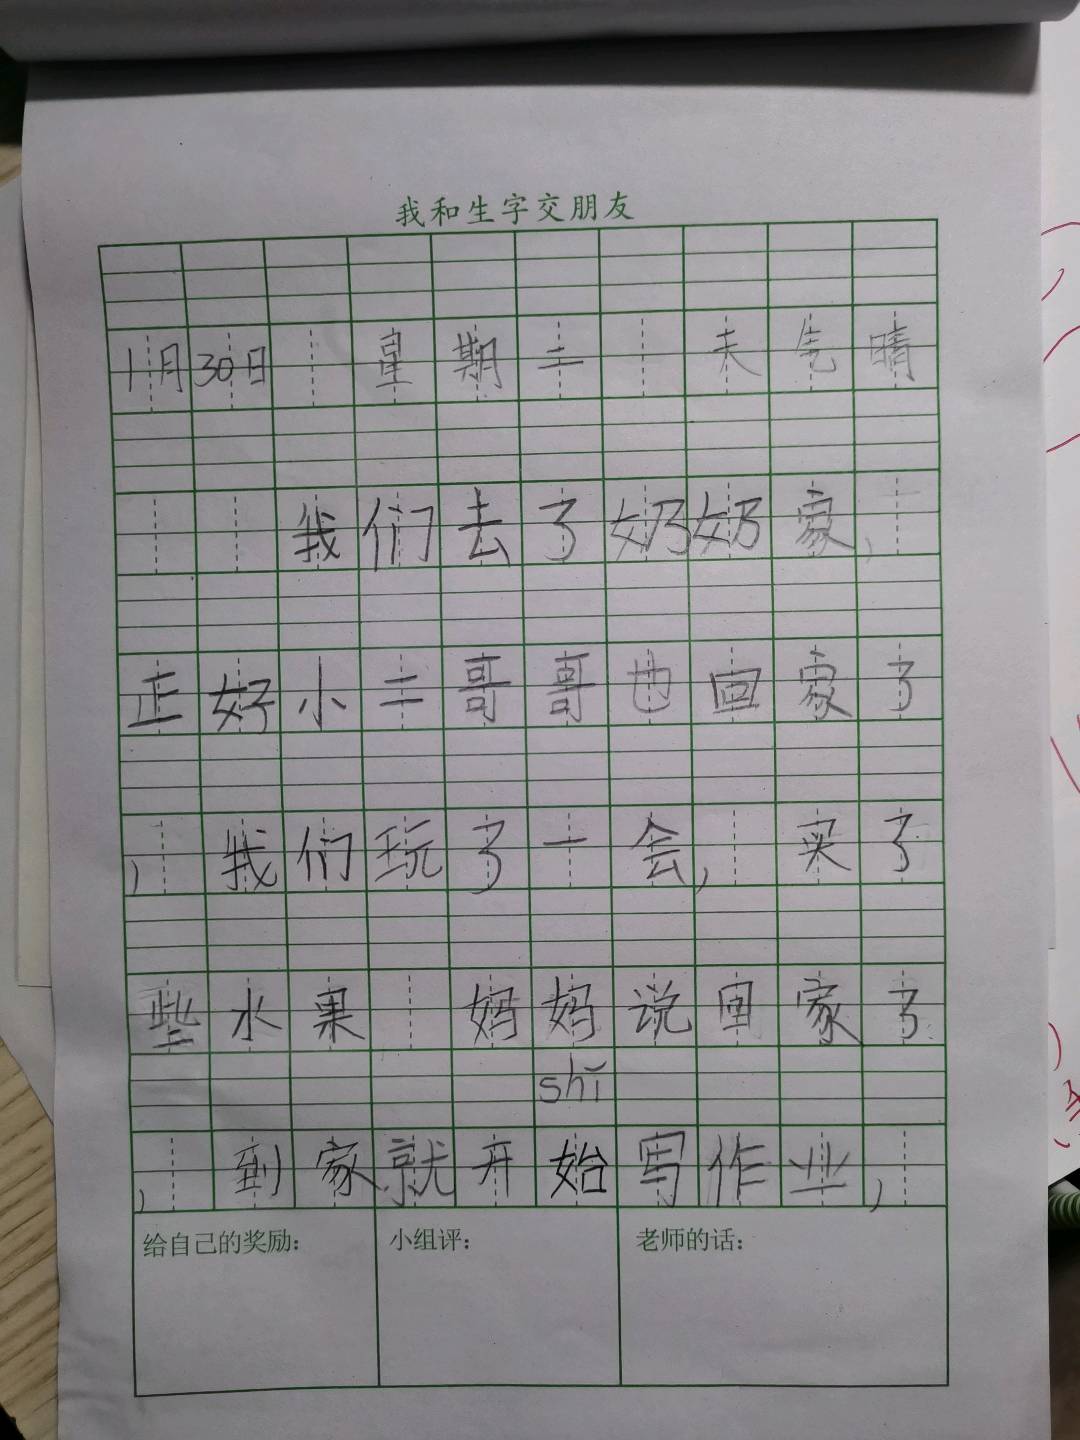 我和生字交朋友
1月30日 星期二 天气晴
我们去了奶奶家，
正好小二哥哥也回家了
，我们玩了一会，买了
些水果 妈妈说回家了
shǐ
，到家就开始写作业，
给自己的奖励： 小组评： 老师的话：